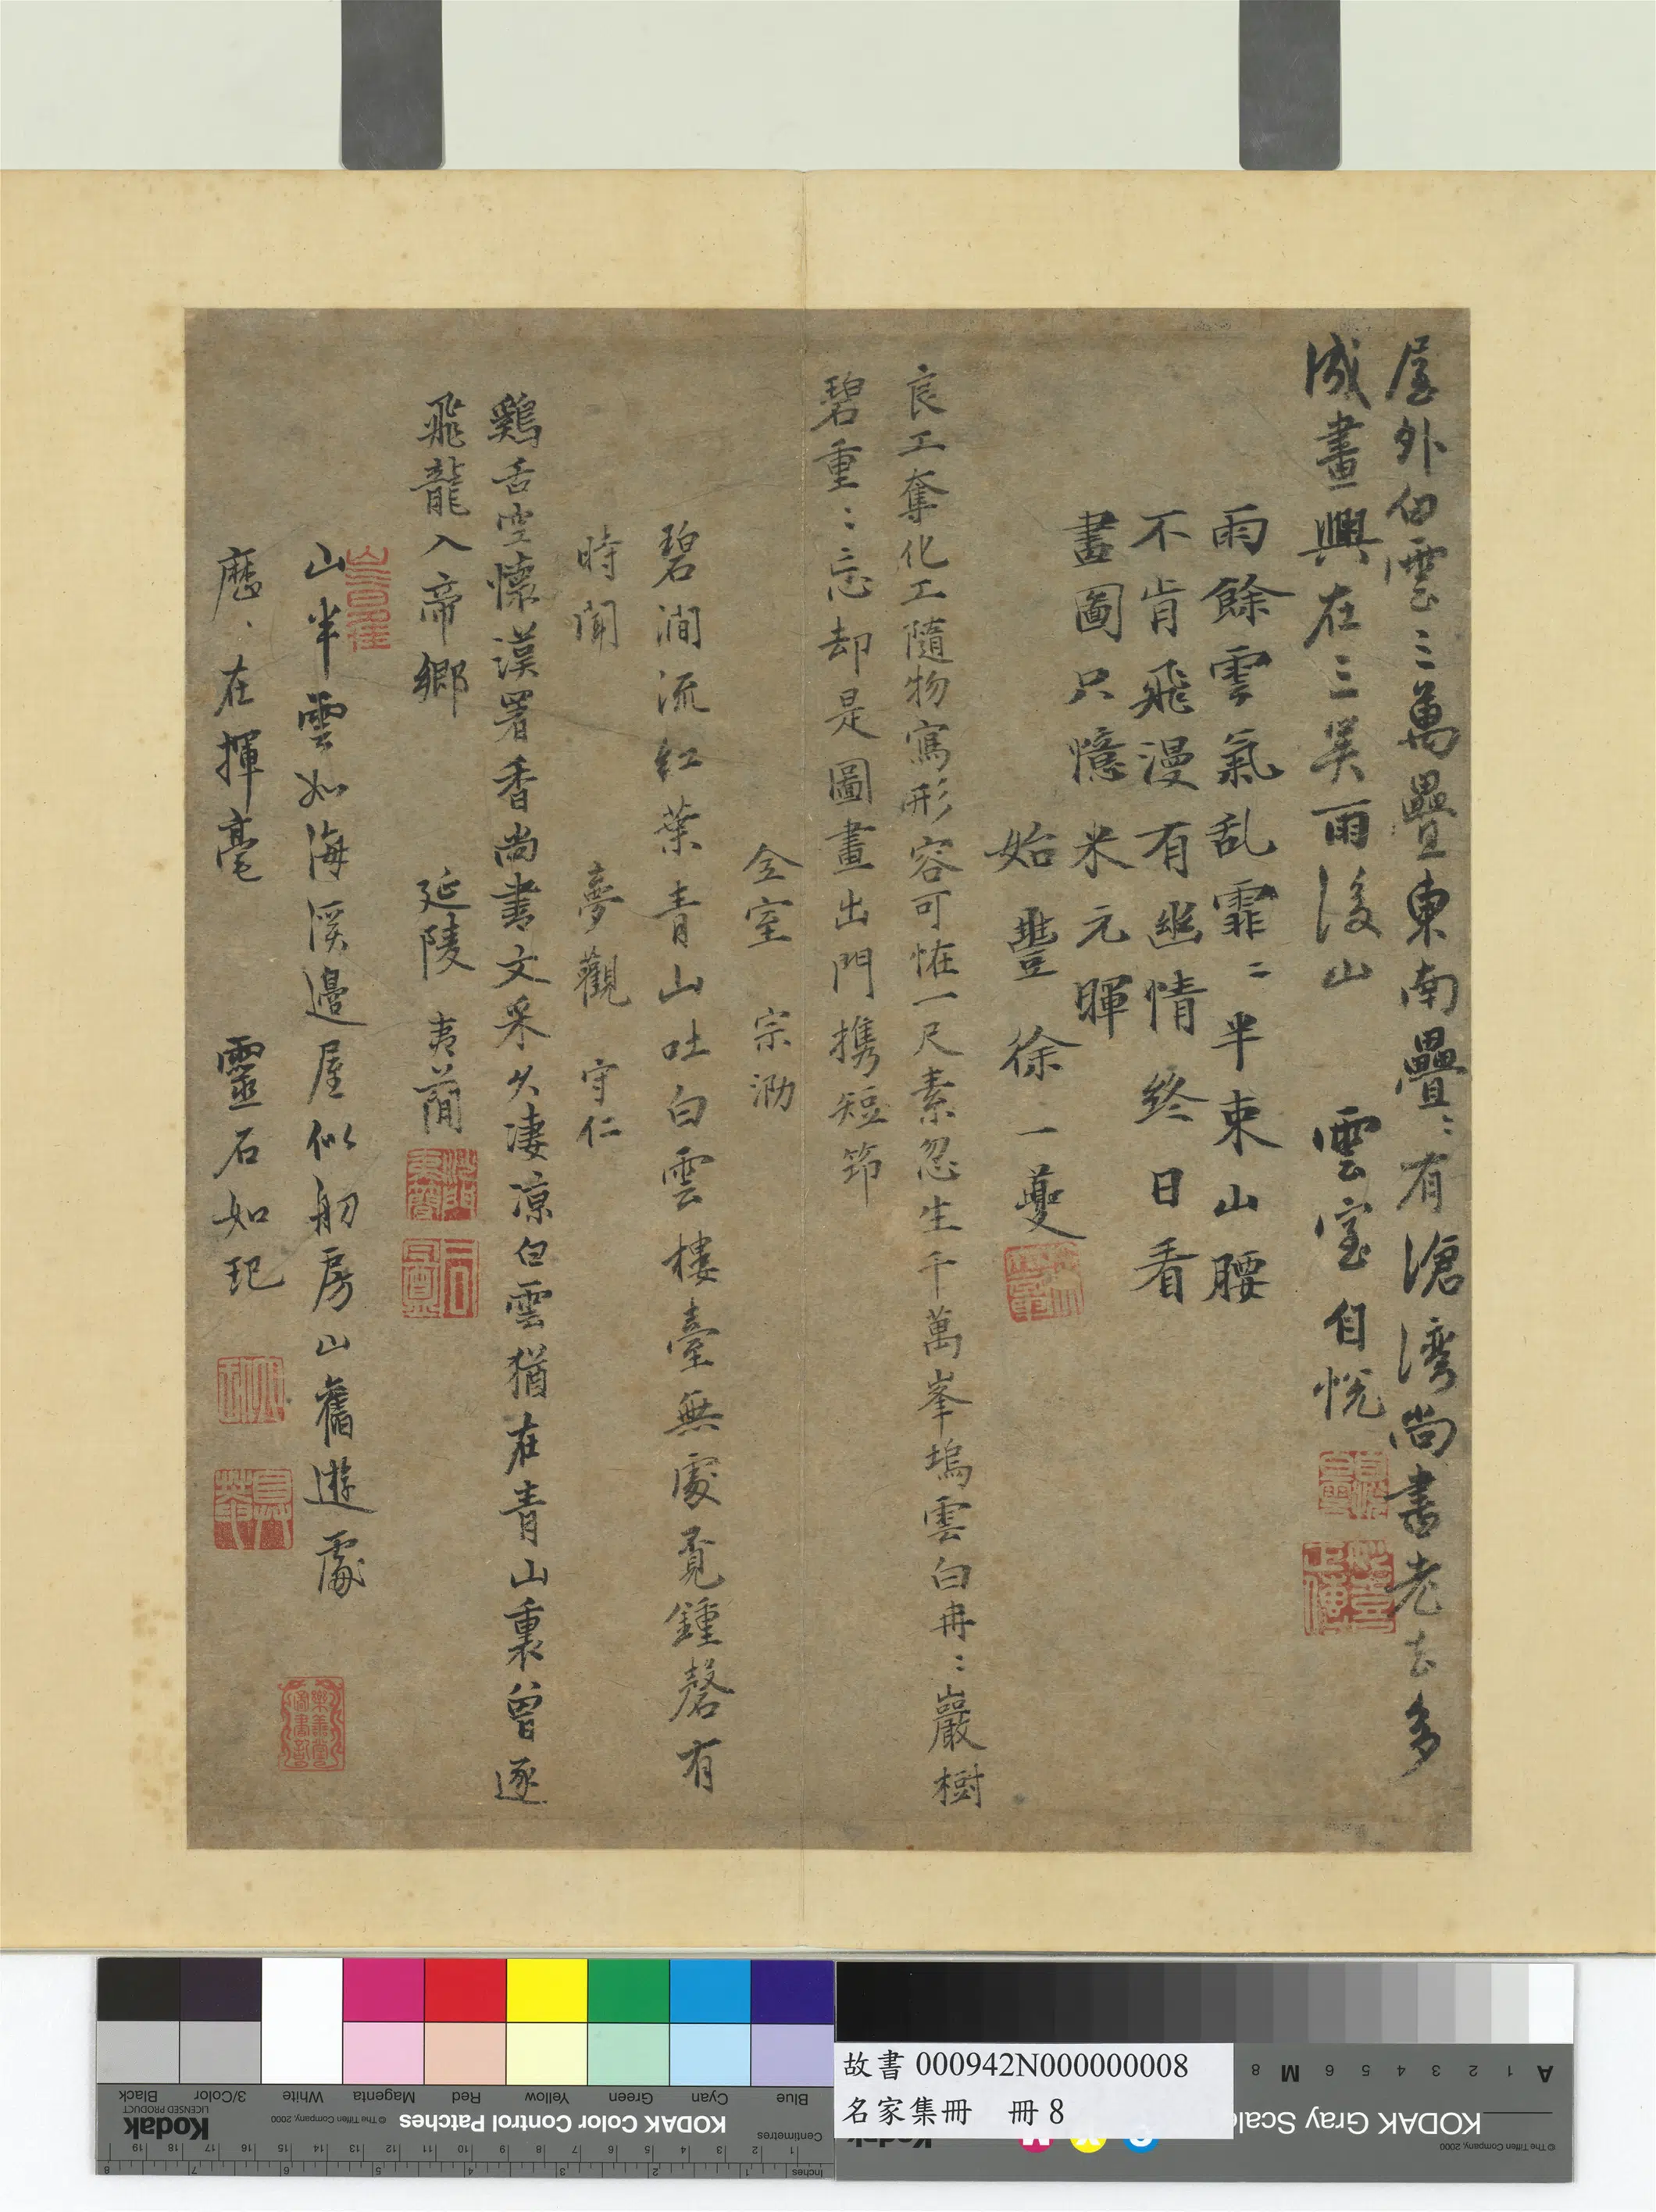 屋外白雲三萬疊東南疊〻有滄灣尚書老去多
減畫興在三吴雨後山　雲室自悅
雨餘雲氣乱霏〻半束山腰
不肯飛漫有幽情終日看
畫圖只憶米元暉
始豐徐一夔
良工奪化工隨物寫形容可恠一尺素忽生千萬峯塢雲白冉〻巖樹
碧重〻忘却是圖畫出門携短筇
全室　宗泐
碧澗流紅葉青山吐白雲樓臺無處覓鍾磬有
時聞　夢觀　守仁
鷄舌空懷漢署香尚書文采久淒涼白雲猶在青山裏曾逐
飛龍入帝鄉　延陵　夷蕑
山半雲如海溪邊屋似舠房山舊遊處
歷〻在揮毫　靈石如玘
故書 000942N000000008
名家集冊　冊 8
Blue Cyan Green Yellow Red Magenta White 3/Color Black
KODAK Color Control Patches © The Tiffen Company, 2000 Kodak LICENSED PRODUCT
Centimetres 1 2 3 4 5 6 7 8 9 10 11 12 13 14 15 16 17 18 19
Inches 1 2 3 4 5 6 7 8
KODAK Gray Scale © The Tiffen Company, 2000
A 1 2 3 4 5 6 M 8